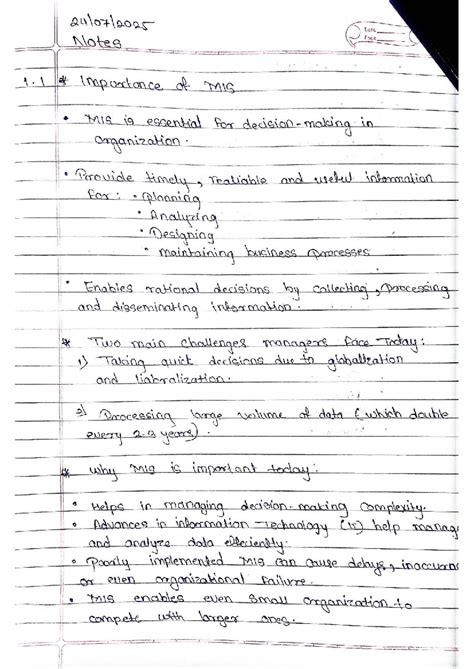 24/07/2025
Notes
Date
Page
1.1 * Importance of MIS
• MIS is essential for decision-making in
organization.
• Provide timely, realiable and useful information
for: • planning
• Analyzing
• Designing
• maintaining business processes
• Enables rational decisions by collecting, processing
and disseminating information.
* Two main challenges managers face Today:
1) Taking quick decisions due to globalization
and liabralization.
2) Processing large volume of data (which double
every 2-3 years).
* Why MIS is important today:
• Helps in managing decision-making complexity.
• Advances in information Technology (IS) help manag
and analyze data efficiently.
• Poorly implemented MIS can cause delays, inaccura
or even organizational failure.
• MIS enables even small organization to
compete with larger ones.